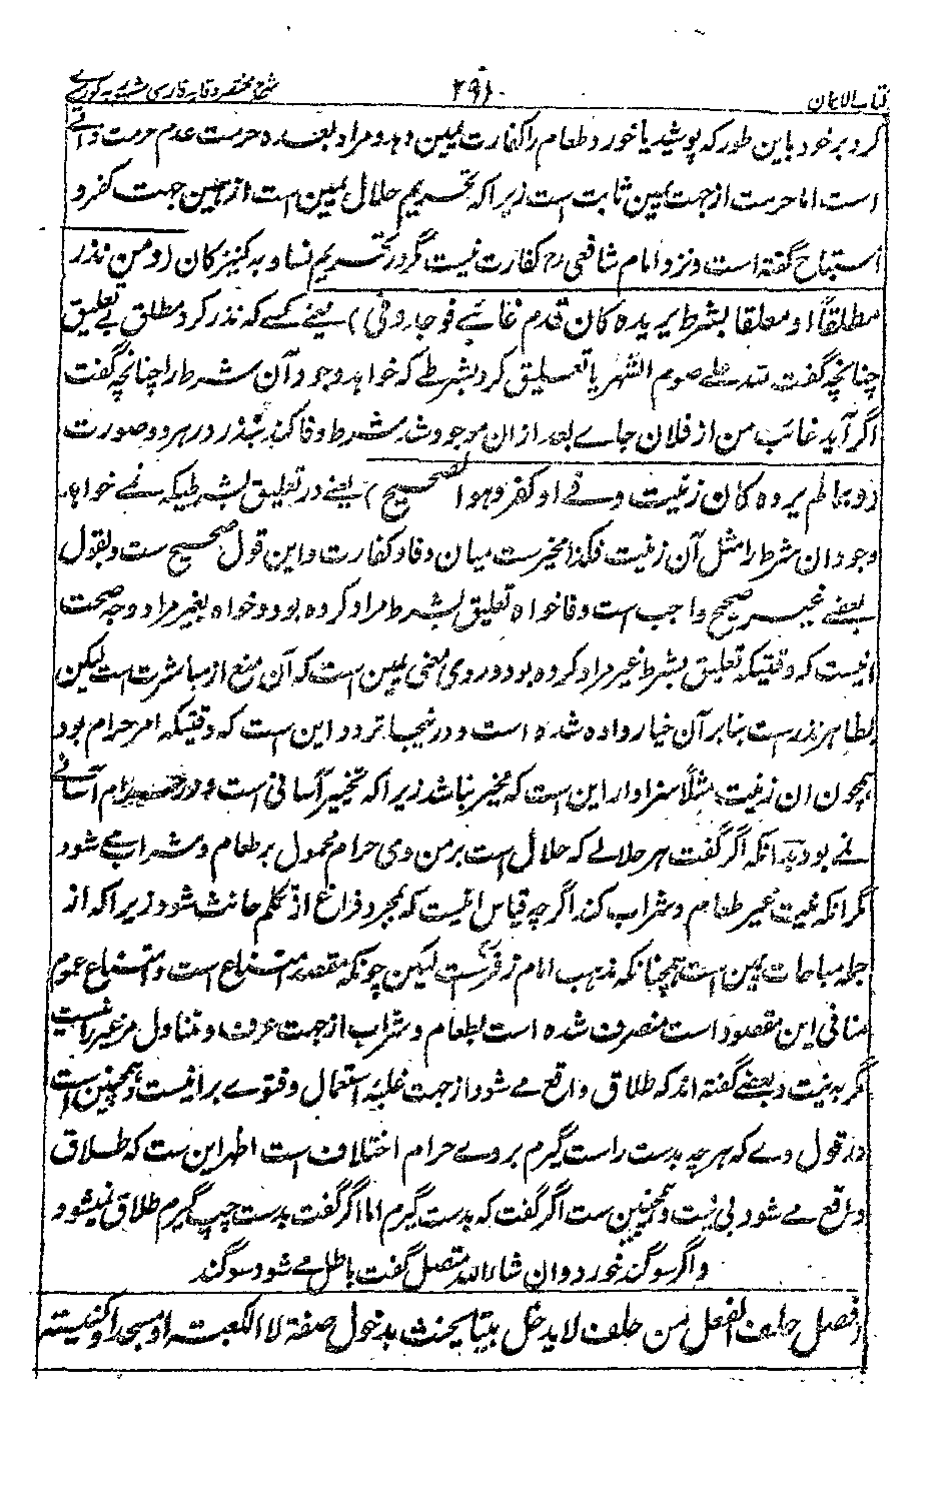 کتاب الایمان
۲۹۱
شرح مختصر وقایه فارسی مشهور به کورے
کرد بر خود باین طور که پوشید یا خورد طعام را کفارت یمین دهد و مراد بعده حرمت عدم حرمت ذاتے
است اما حرمت از جهت یمین ثابت است زیرا که تحریم حلال یمین است از همین جهت کفر و
استباح گفته است و نزد امام شافعی رح کفارت نیست مگر در تحریم نساء و به کنیزکان (و من نذر
مطلقاً او معلقا بشرط یریده کان قدم غائبے فوجد وفی) یعنے کسے که نذر کرد مطلق بے تعلیق
چنانچه گفت لله علے صوم الشهر یا تعلیق کرد بشرطے که خواهد وجود آن شرط را چنانچه گفت
اگر آید غائب من از فلان جاے بعد ازان موجود شد شرط وفا کند بنذر در هر دو صورت
(و بما لم یرده کان زنیت وفے او کفر و هو الصحیح) یعنے در تعلیق بشرطیکه نمے خواهد
وجود ان شرط را مثل آن زنیت فکذا مخیرست میان وفا و کفارت و این قول صحیح ست و بقول
بعضے غیر صحیح واجب است وفا خواه تعلیق بشرط مراد کرده بود و خواه بغیر مراد وجه صحت
انیست که وقتیکه تعلیق بشرط غیر مراد کرده بود در وی معنی یمین است که آن منع از مباشرت است لیکن
بظاهر نذرست بنابر آن خیار داده شده است و درینجا تردد این ست که وقتیکه امر حرام بود
همچون ان زنیت مثلاً سزاوار این است که مخیر نباشد زیرا که تخییر آسانی است و در حرام آسانے
نمے بود بدانکه اگر گفت هر حلالے که حلال است بر من وی حرام محمول بر طعام و شراب مے شود
مگر انکه نیت غیر طعام و شراب کند اگر چه قیاس انیست که بمجرد فراغ از تکلم حانث شود زیرا که از
جمله مباحات یمین است چنانکه مذهب امام زفرست لیکن چونکه مقصد امتناع است و امتناع عموم
منافی این مقصود است منصرف شده است بطعام و شراب از جهت عرف و متناول مر غیر را نیست
مگر به نیت و بعضے گفته اند که طلاق واقع مے شود از جهت غلبه استعمال و فتوے بر انیست و همچنین است
در قول وے که هر چه بدست راست گیرم بر وے حرام اختلاف است اظهر این ست که طلاق
واقع مے شود بی نیت و همچنین ست اگر گفت که بدست گیرم اما اگر گفت بدست چپ گیرم طلاق نمیشود
و اگر سوگند خورد و ان شاء الله متصل گفت باطل مے شود سوگند
(فصل حلف الفعل من حلف لا یدخل بیتا یحنث بدخول صفة لا الکعبة او مسجد او کنیسة